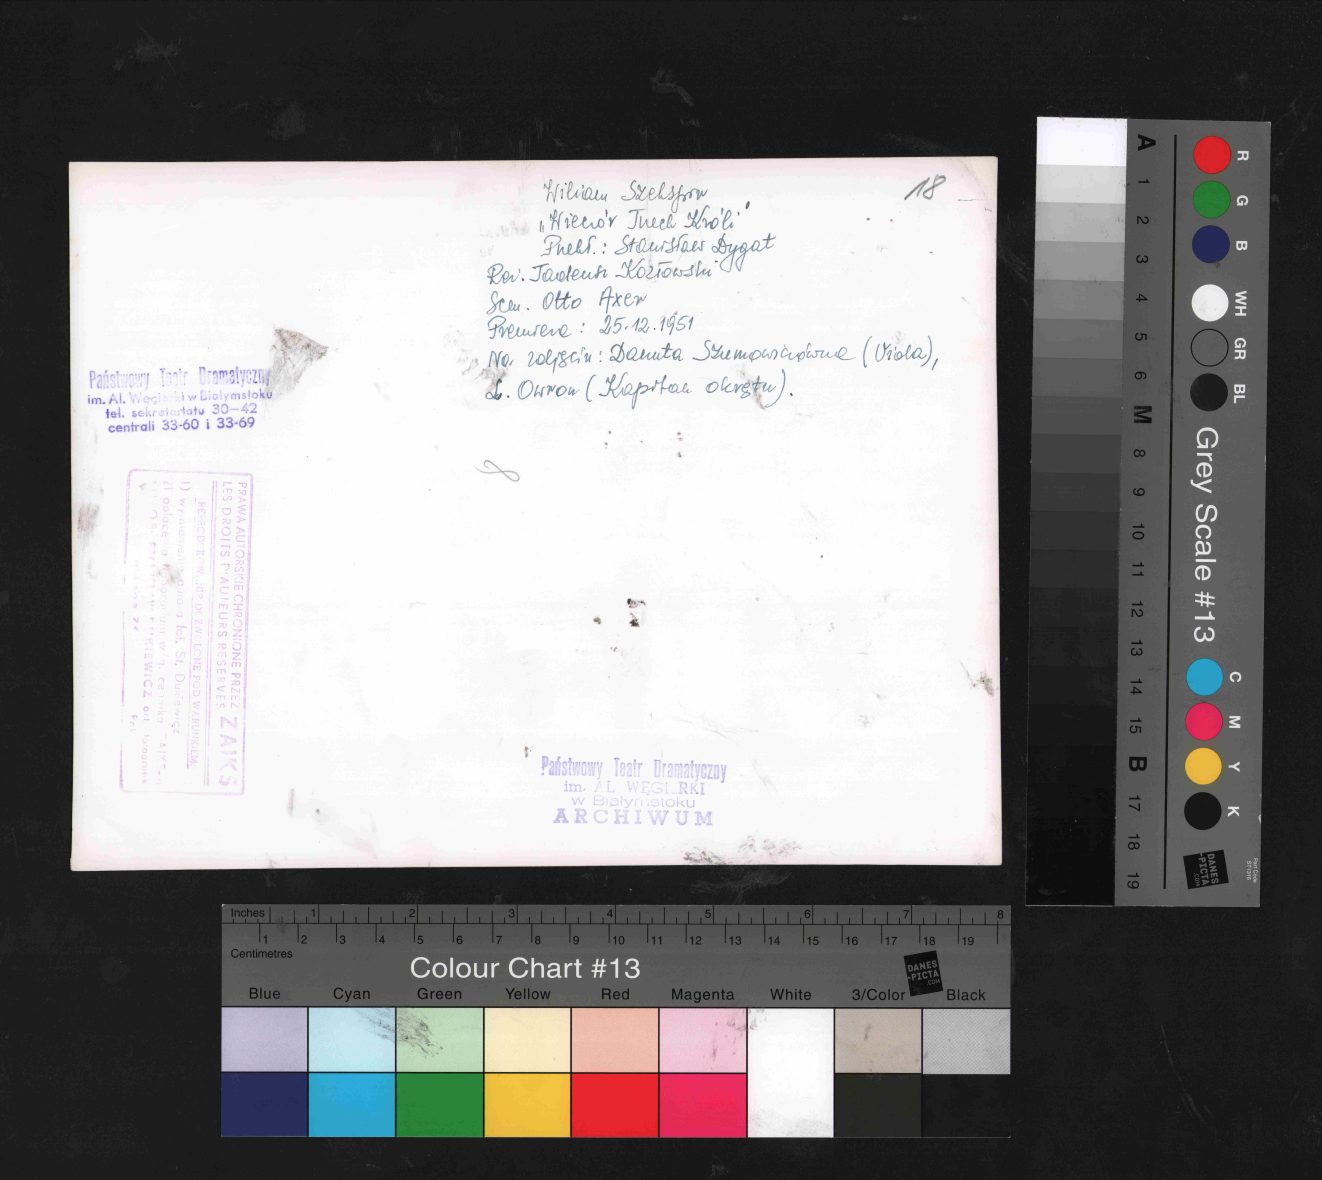 Wiliam Szekspir
18
„Wieczór Trzech Króli"
Przekł.: Stanisław Dygat
Reż. Tadeusz Kozłowski
Scen. Otto Axer
Premiera: 25.12.1951
Na zdjęciu: Danuta Szumowiczówna (Viola),
(Kapitan okrętu).
Państwowy Teatr Dramatyczny
im. Al. Węgierki w Białymstoku
tel. sekretariatu 30—42
centrali 33-60 i 33-69
PRAWA AUTORSKIE CHRONIONE PRZEZ
LES DROITS D'AUTEURS RESERVES ZAIKS
POD WARUNKIEM
1) fot. St.
2)
Państwowy Teatr Dramatyczny
im. AL WĘGIERKI
w Białymstoku
ARCHIWUM
A 1 2 3 4 5 6 M 8 9 10 11 12 13 14 15 B 17 18 19
R G B WH GR BL
Grey Scale #13
C M Y K
DANES
-PICTA
.COM
Inches 1 2 3 4 5 6 7 8
1 2 3 4 5 6 7 8 9 10 11 12 13 14 15 16 17 18 19
Centimetres
Colour Chart #13
DANES
-PICTA
.COM
Blue Cyan Green Yellow Red Magenta White 3/Color Black